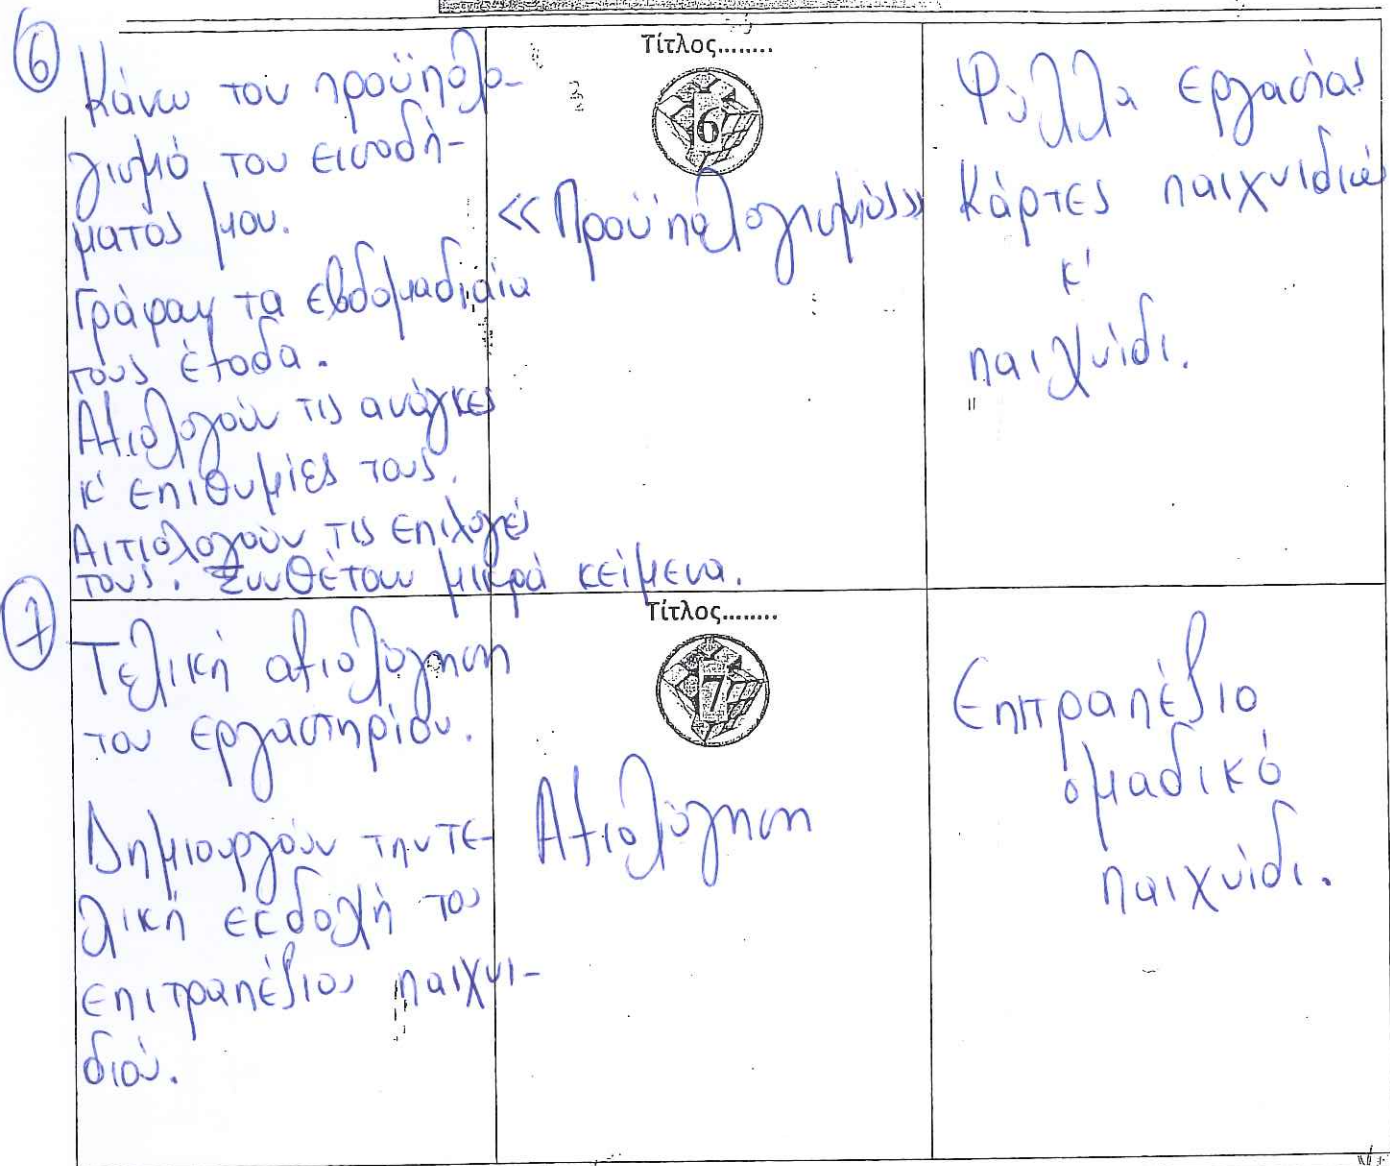 6
Κάνω τον προϋπολο-
γισμό του εισοδή-
ματός μου.
Γράφουν τα εβδομαδιαία
τους έξοδα.
Αξιολογούν τις ανάγκες
κ' επιθυμίες τους.
Αιτιολογούν τις επιλογές
τους. Συνθέτουν μικρά κείμενα.
Τίτλος........
6
<<Προϋπολογισμός>>
Φύλλα εργασίας
Κάρτες παιχνιδιού
κ'
παιχνίδι.
7
Τελική αξιολόγηση
του εργαστηρίου.
Δημιουργούν την τε-
λική εκδοχή του
επιτραπέζιου παιχνι-
διού.
Τίτλος........
7
Αξιολόγηση
Επιτραπέζιο
ομαδικό
παιχνίδι.